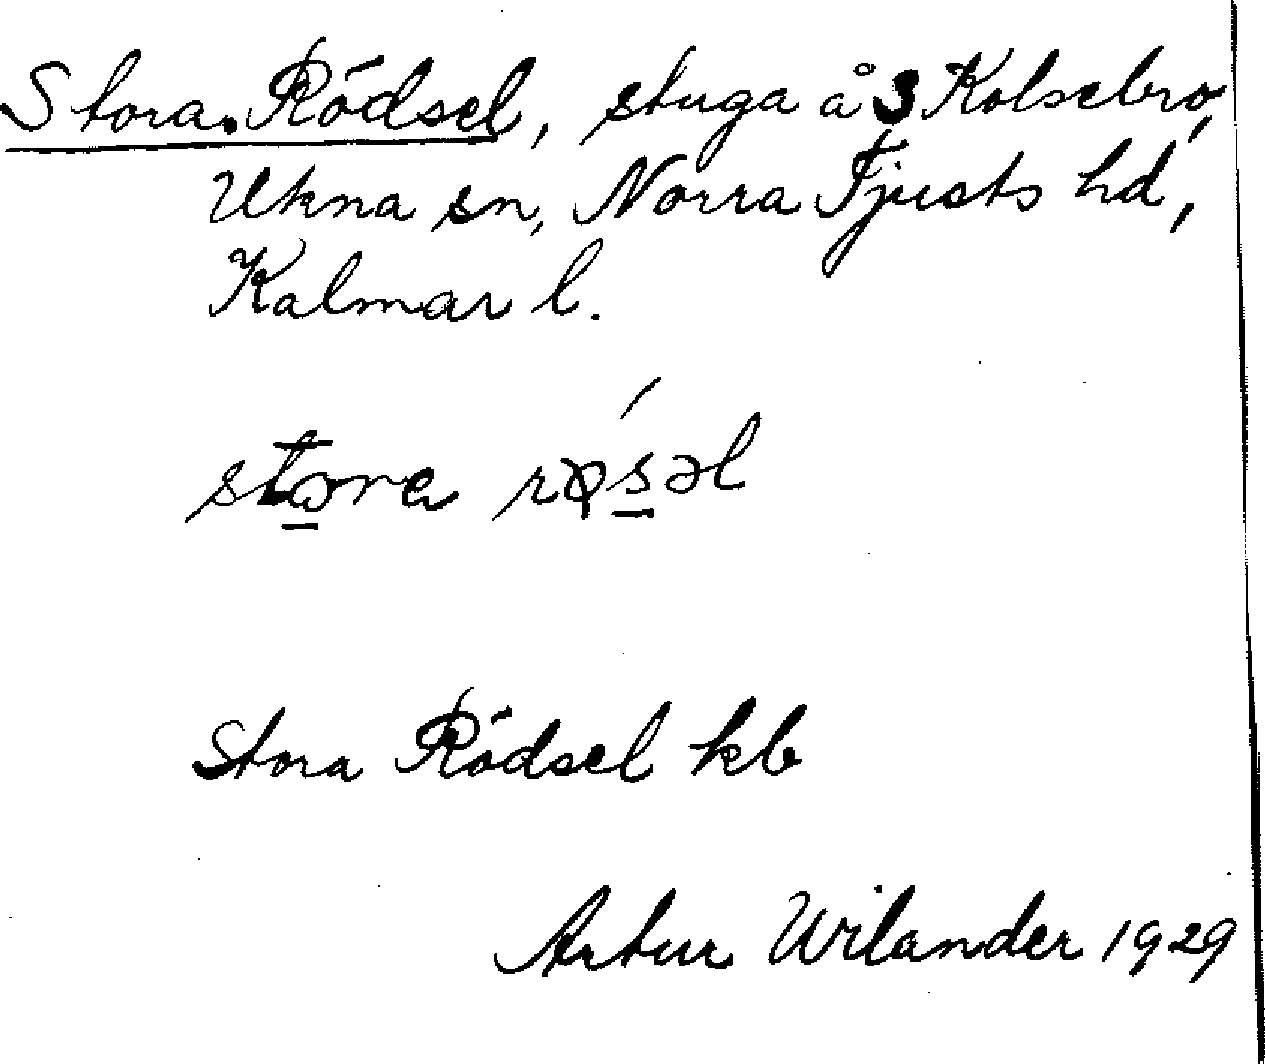 Stora Rödsel, stuga å 3 Kolsebro,
Ukna sn, Norra Tjusts hd,
Kalmar l.
stora røsəl
Stora Rödsel kb
Artur Wilander 1929